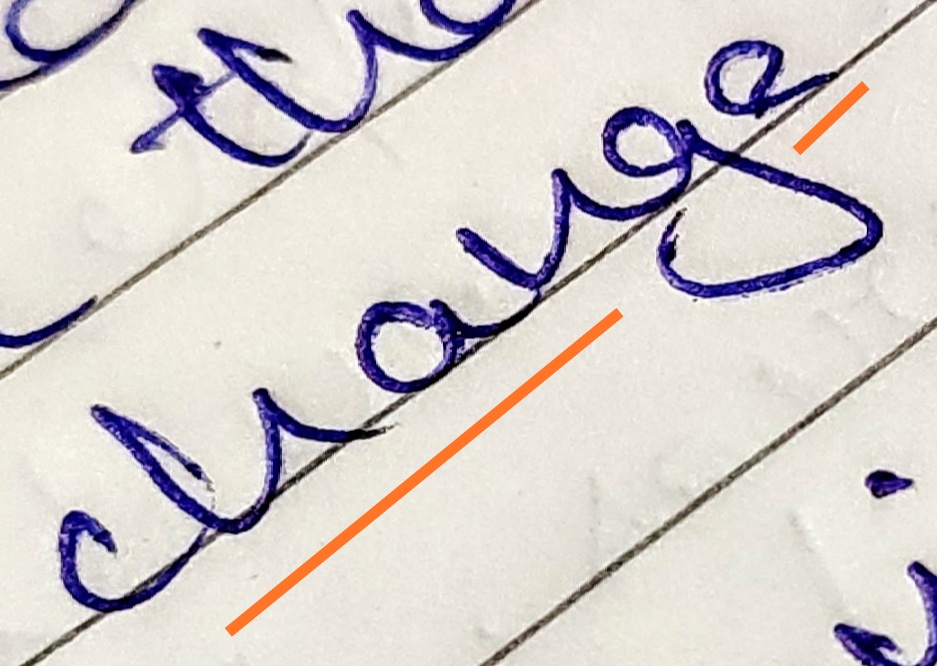 the
change